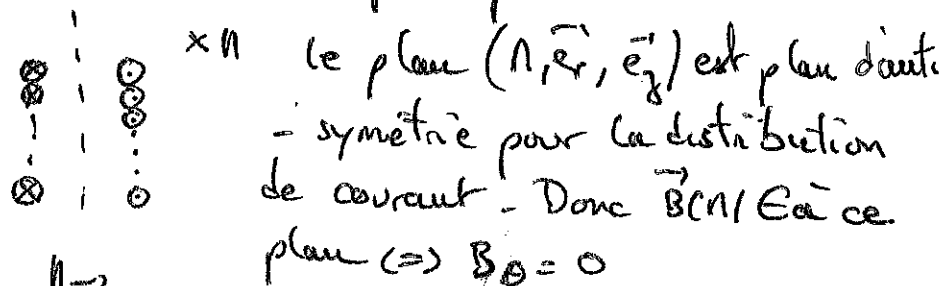 × M le plan (M, e⃗r, e⃗z) est plan d'anti
- symétrie pour la distribution
de courant. Donc B⃗(M) ∈ à ce
plan <=> Bθ = 0